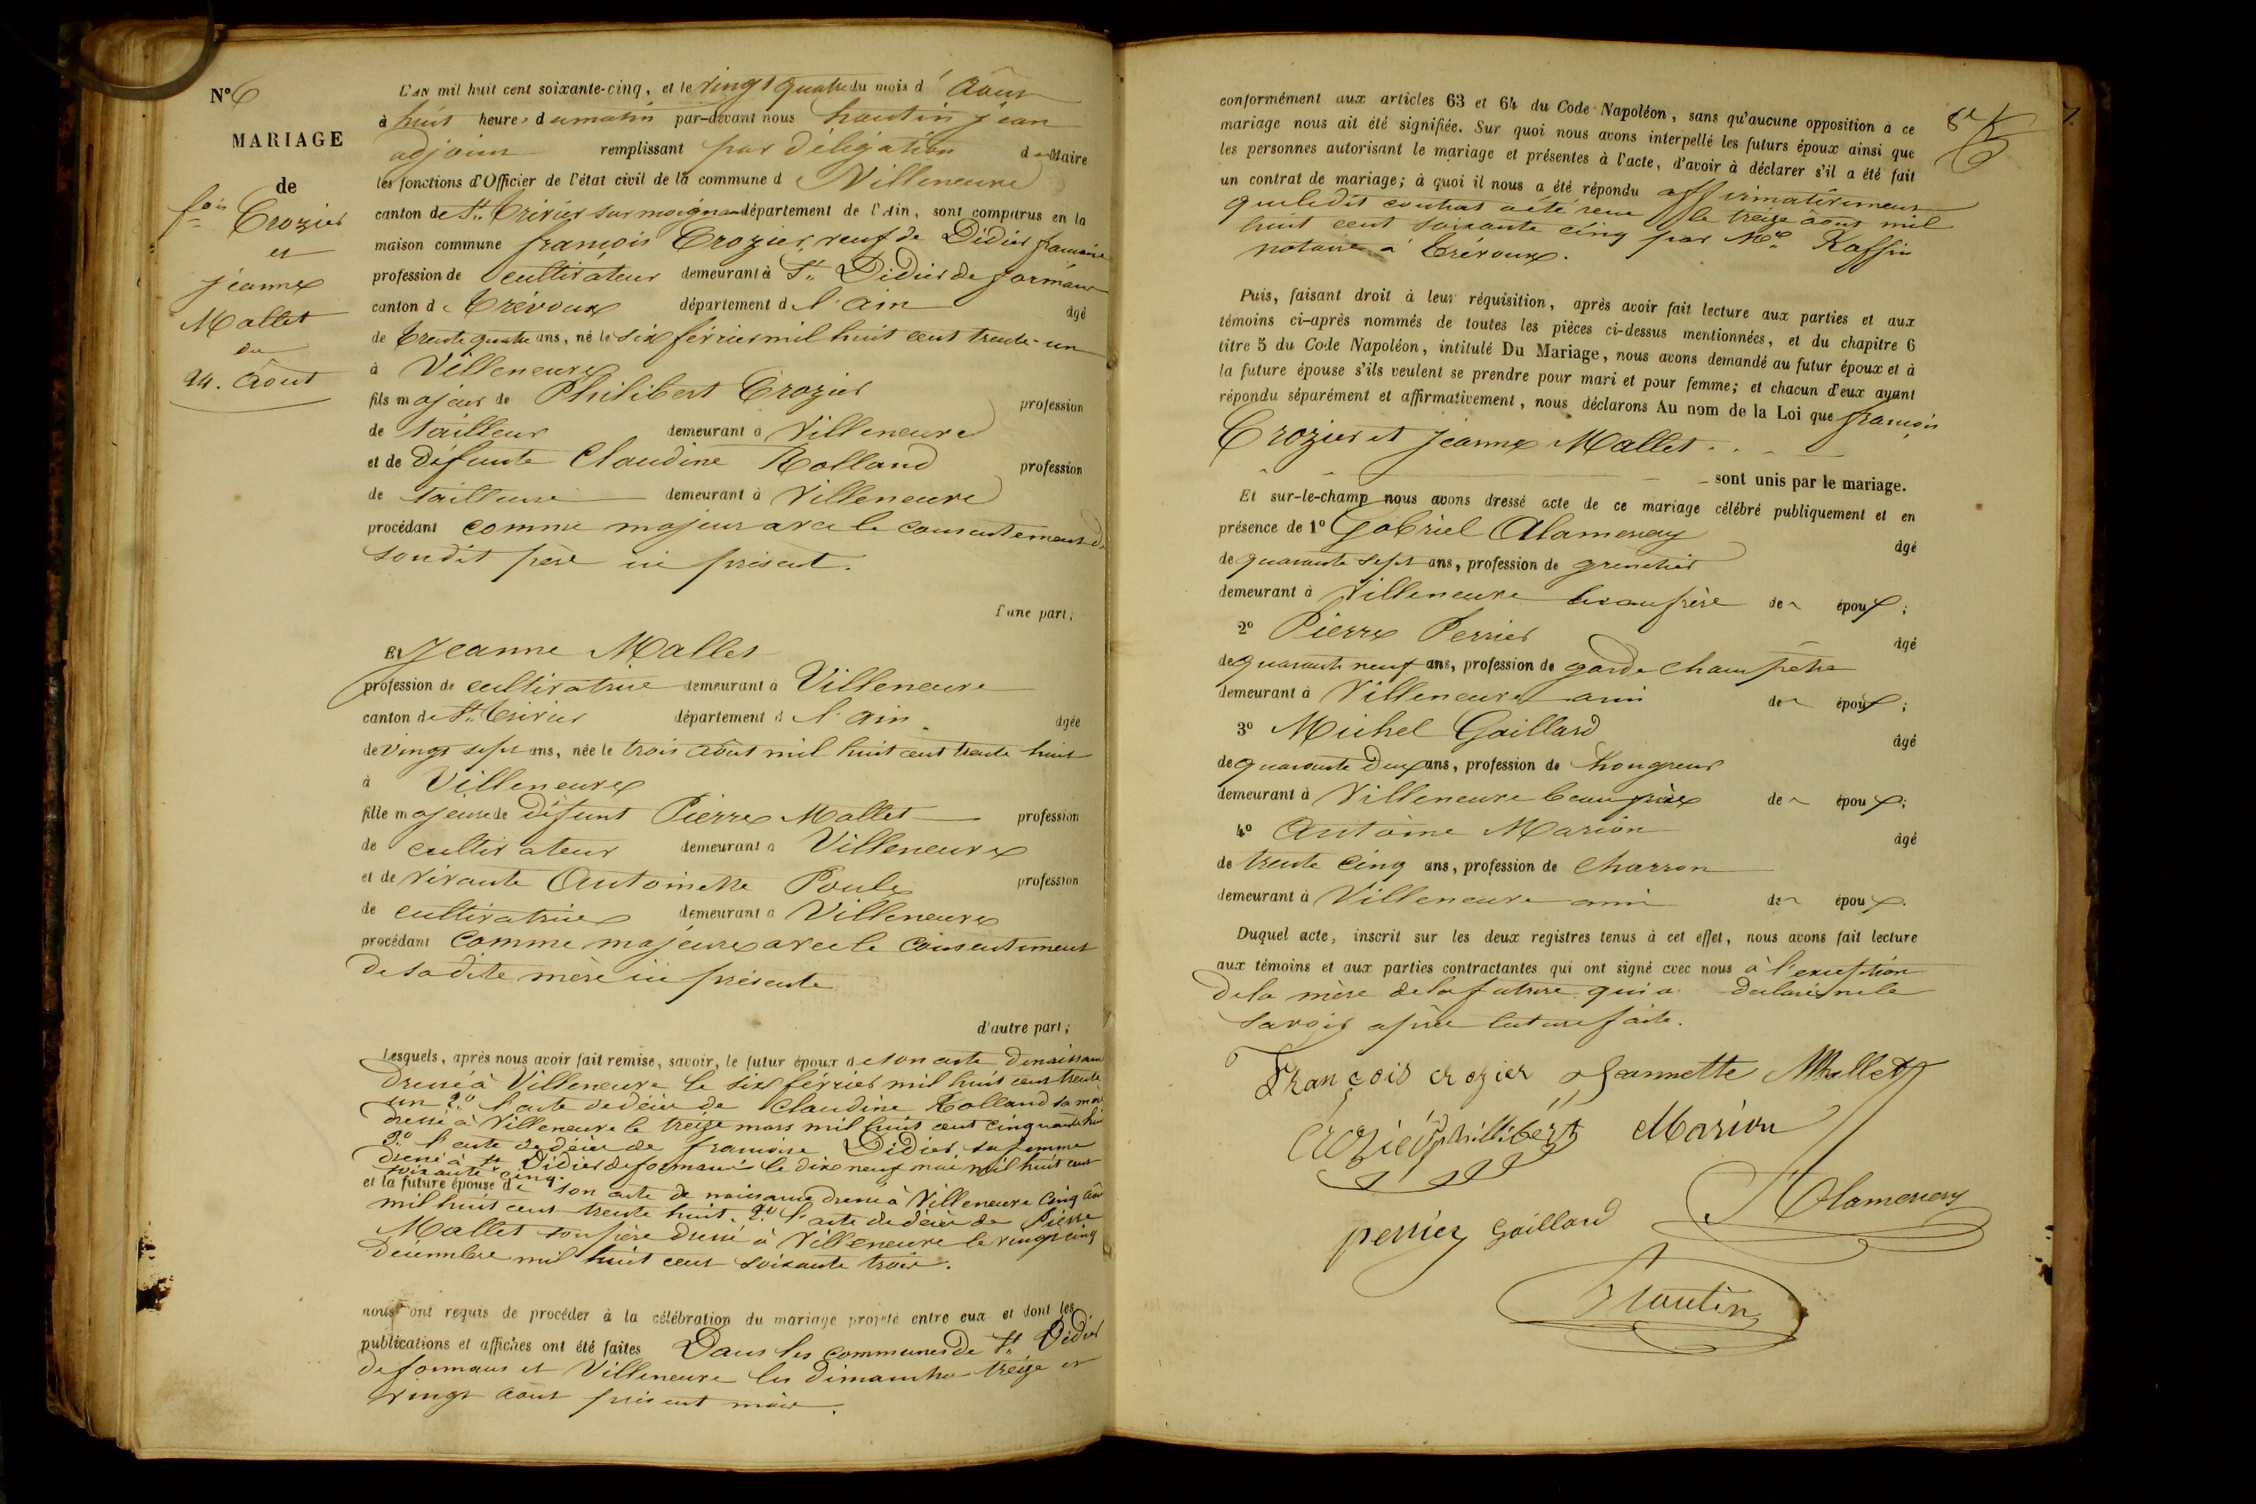 N° 6
MARIAGE
de
fois Crozier
et
jeanne
Mallet
du
24. Août
L'AN mil huit cent soixante-cinq, et le vingt quatre du mois d'Août
à huit heures du matin par-devant nous hautin jean
adjoint remplissant par déligation du Maire
les fonctions d'Officier de l'état civil de la commune de Villeneuve
canton de St. Trivier sur moignans département de l'Ain, sont comparus en la
maison commune françois Crozier, veuf de Didier francoise
profession de cultivateur demeurant à St. Didier de formans
canton de Trévoux département de l'ain âgé
de trente quatre ans, né le six février mil huit cent trente-un
à Villeneuve
fils majeur de Philibert Crozier profession
de tailleur demeurant à Villeneuve
et de défunte Claudine Rolland profession
de tailleuse demeurant à Villeneuve
procédant comme majeur avec le consentement de
son dit père ici présent.
d'une part;
Et Jeanne Mallet
profession de cultivatrice demeurant à Villeneuve
canton de St. Trivier département de l'ain âgée
de vingt sept ans, née le trois août mil huit cent trente huit
à Villeneuve
fille majeure de défunt Pierre Mallet profession
de cultivateur demeurant à Villeneuve
et de vivante Antoinette Poule profession
de cultivatrice demeurant à Villeneuve
procédant comme majeure avec le consentement
de sa dite mère ici présente
d'autre part;
Lesquels, après nous avoir fait remise, savoir, le futur époux de son acte de naissance
dressé à Villeneuve le six février mil huit cent trente
un 2.o l'acte de décès de Claudine Rolland sa mère
dressé à Villeneuve le treize mars mil huit cent cinquante huit
3.o l'acte de décès de francoise Didier, sa femme
dressé à St. Didier de formans le dix neuf mai mil huit cent
soixante cinq.
et la future épouse de son acte de naissance dressé à Villeneuve cinq août
mil huit cent trente huit. 2.o l'acte de décès de Pierre
Mallet son père dressé à Villeneuve le vingt cinq
décembre mil huit cent soixante trois.
nous ont requis de procéder à la célébration du mariage projeté entre eux et dont les
publications et affiches ont été faites Dans les communes de St. Didier
de formans et Villeneuve les dimanches treize et
vingt août présent mois.
conformément aux articles 63 et 64 du Code Napoléon, sans qu'aucune opposition à ce
mariage nous ait été signifiée. Sur quoi nous avons interpellé les futurs époux ainsi que
les personnes autorisant le mariage et présentes à l'acte, d'avoir à déclarer s'il a été fait
un contrat de mariage; à quoi il nous a été répondu affirmativement
que le dit contrat a été reçu le treize août mil
huit cent soixante cinq par Me. Raffin
notaire à Trévoux.
Puis, faisant droit à leur réquisition, après avoir fait lecture aux parties et aux
témoins ci-après nommés de toutes les pièces ci-dessus mentionnées, et du chapitre 6
titre 5 du Code Napoléon, intitulé Du Mariage, nous avons demandé au futur époux et à
la future épouse s'ils veulent se prendre pour mari et pour femme; et chacun d'eux ayant
répondu séparément et affirmativement, nous déclarons Au nom de la Loi que françois
Crozier et Jeanne Mallet
sont unis par le mariage.
Et sur-le-champ nous avons dressé acte de ce mariage célébré publiquement et en
présence de 1° Gabriel Alamercery âgé
de quarante sept ans, profession de grenetier
demeurant à Villeneuve beaufrère de l époux;
2° Pierre Perrier âgé
de quarante neuf ans, profession de garde champêtre
demeurant à Villeneuve ami de l époux;
3° Michel Gaillard âgé
de quarante deux ans, profession de hongreur
demeurant à Villeneuve beaufrère de l époux;
4° Antoine Marion âgé
de trente cinq ans, profession de charron
demeurant à Villeneuve ami de l époux.
Duquel acte, inscrit sur les deux registres tenus à cet effet, nous avons fait lecture
aux témoins et aux parties contractantes qui ont signé avec nous à l'exception
de la mère de la future qui a déclaré ne le
savoir après lecture faite.
François crozier Jeannette Mallet
Crozier phillibert Marion
perrier Gaillard Alamercery
Hautin